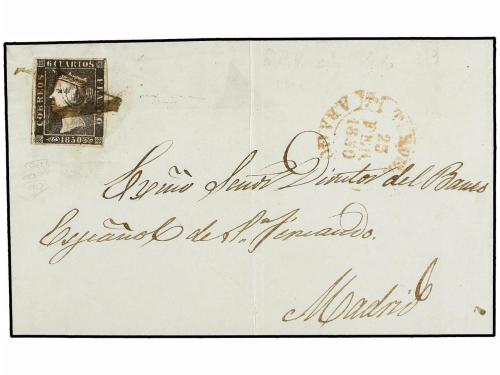 6 CUARTOS
CORREOS
FRANCO
1850
23
FEB
1850
Exmo Señor Director del Banco
Español de Sn. Fernando.
Madrid